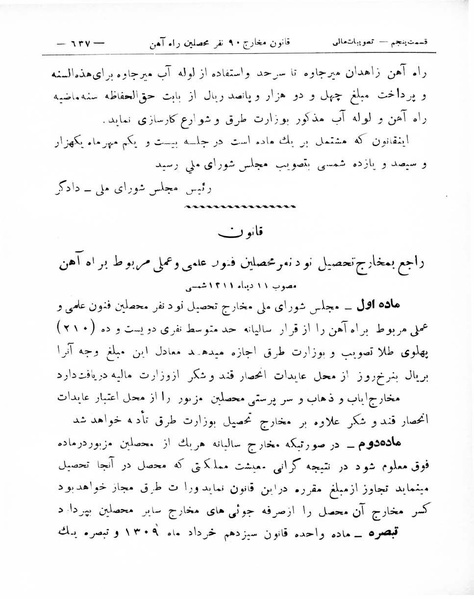 قسمت پنجم — تصویبات مالی قانون مخارج ۹۰ نفر محصلین راه آهن — ۶۳۷ —
راه آهن زاهدان میرجاوه تا سرحد واستفاده از لوله آب میرجاوه برای هذه السنه
و پرداخت مبلغ چهل و دو هزار و پانصد ریال از بابت حق الحفاظه سنه ماضیه
راه آهن و لوله آب مذکور بوزارت طرق و شوارع کارسازی نماید.
اینقانون که مشتمل بر یك ماده است در جلسه بیست و یکم مهرماه یکهزار
و سیصد و یازده شمسی بتصویب مجلس شورای ملی رسید
رئیس مجلس شورای ملی ـ دادگر
قانون
راجع بمخارج تحصیل نود نفر محصلین فنون علمی و عملی مربوط براه آهن
مصوب ۱۱ دیماه ۱۳۱۱ شمسی
ماده اول ـ مجلس شورای ملی مخارج تحصیل نود نفر محصلین فنون علمی و
عملی مربوط براه آهن را از قرار سالیانه حد متوسط نفری دویست و ده (۲۱۰)
پهلوی طلا تصویب و بوزارت طرق اجازه میدهد معادل این مبلغ وجه آنرا
بریال بنرخ روز از محل عایدات انحصار قند و شکر ازوزارت مالیه دریافت دارد
مخارج ایاب و ذهاب و سر پرستی محصلین مزبور را از محل اعتبار عایدات
انحصار قند و شکر علاوه بر مخارج تحصیل بوزارت طرق تأدیه خواهد شد
ماده دوم ـ در صورتیکه مخارج سالیانه هریك از محصلین مزبور در ماده
فوق معلوم شود در نتیجه گرانی معیشت مملکتی که محصل در آنجا تحصیل
مینماید تجاوز از مبلغ مقرره در این قانون نماید وزارت طرق مجاز خواهد بود
کسر مخارج آن محصل را از صرفه جوئی های مخارج سایر محصلین بپردازد
تبصره ـ ماده واحده قانون سیزدهم خرداد ماه ۱۳۰۹ و تبصره یك